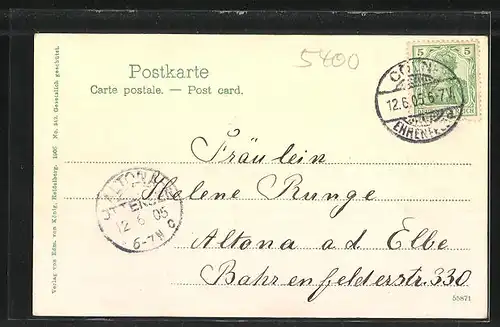 5400
5 5
CÖLN-
12.6.05.6-7V.
EHRENFELD
Postkarte
Carte postale. — Post card.
Fräulein
Helene Runge
Altona a.d. Elbe
Bahrenfelderstr. 330
ALTONA
OTTENSEN
12 6 05
6-7N
C
Verlag von Edm. von König, Heidelberg. 1905 Gesetzlich geschützt.
55871